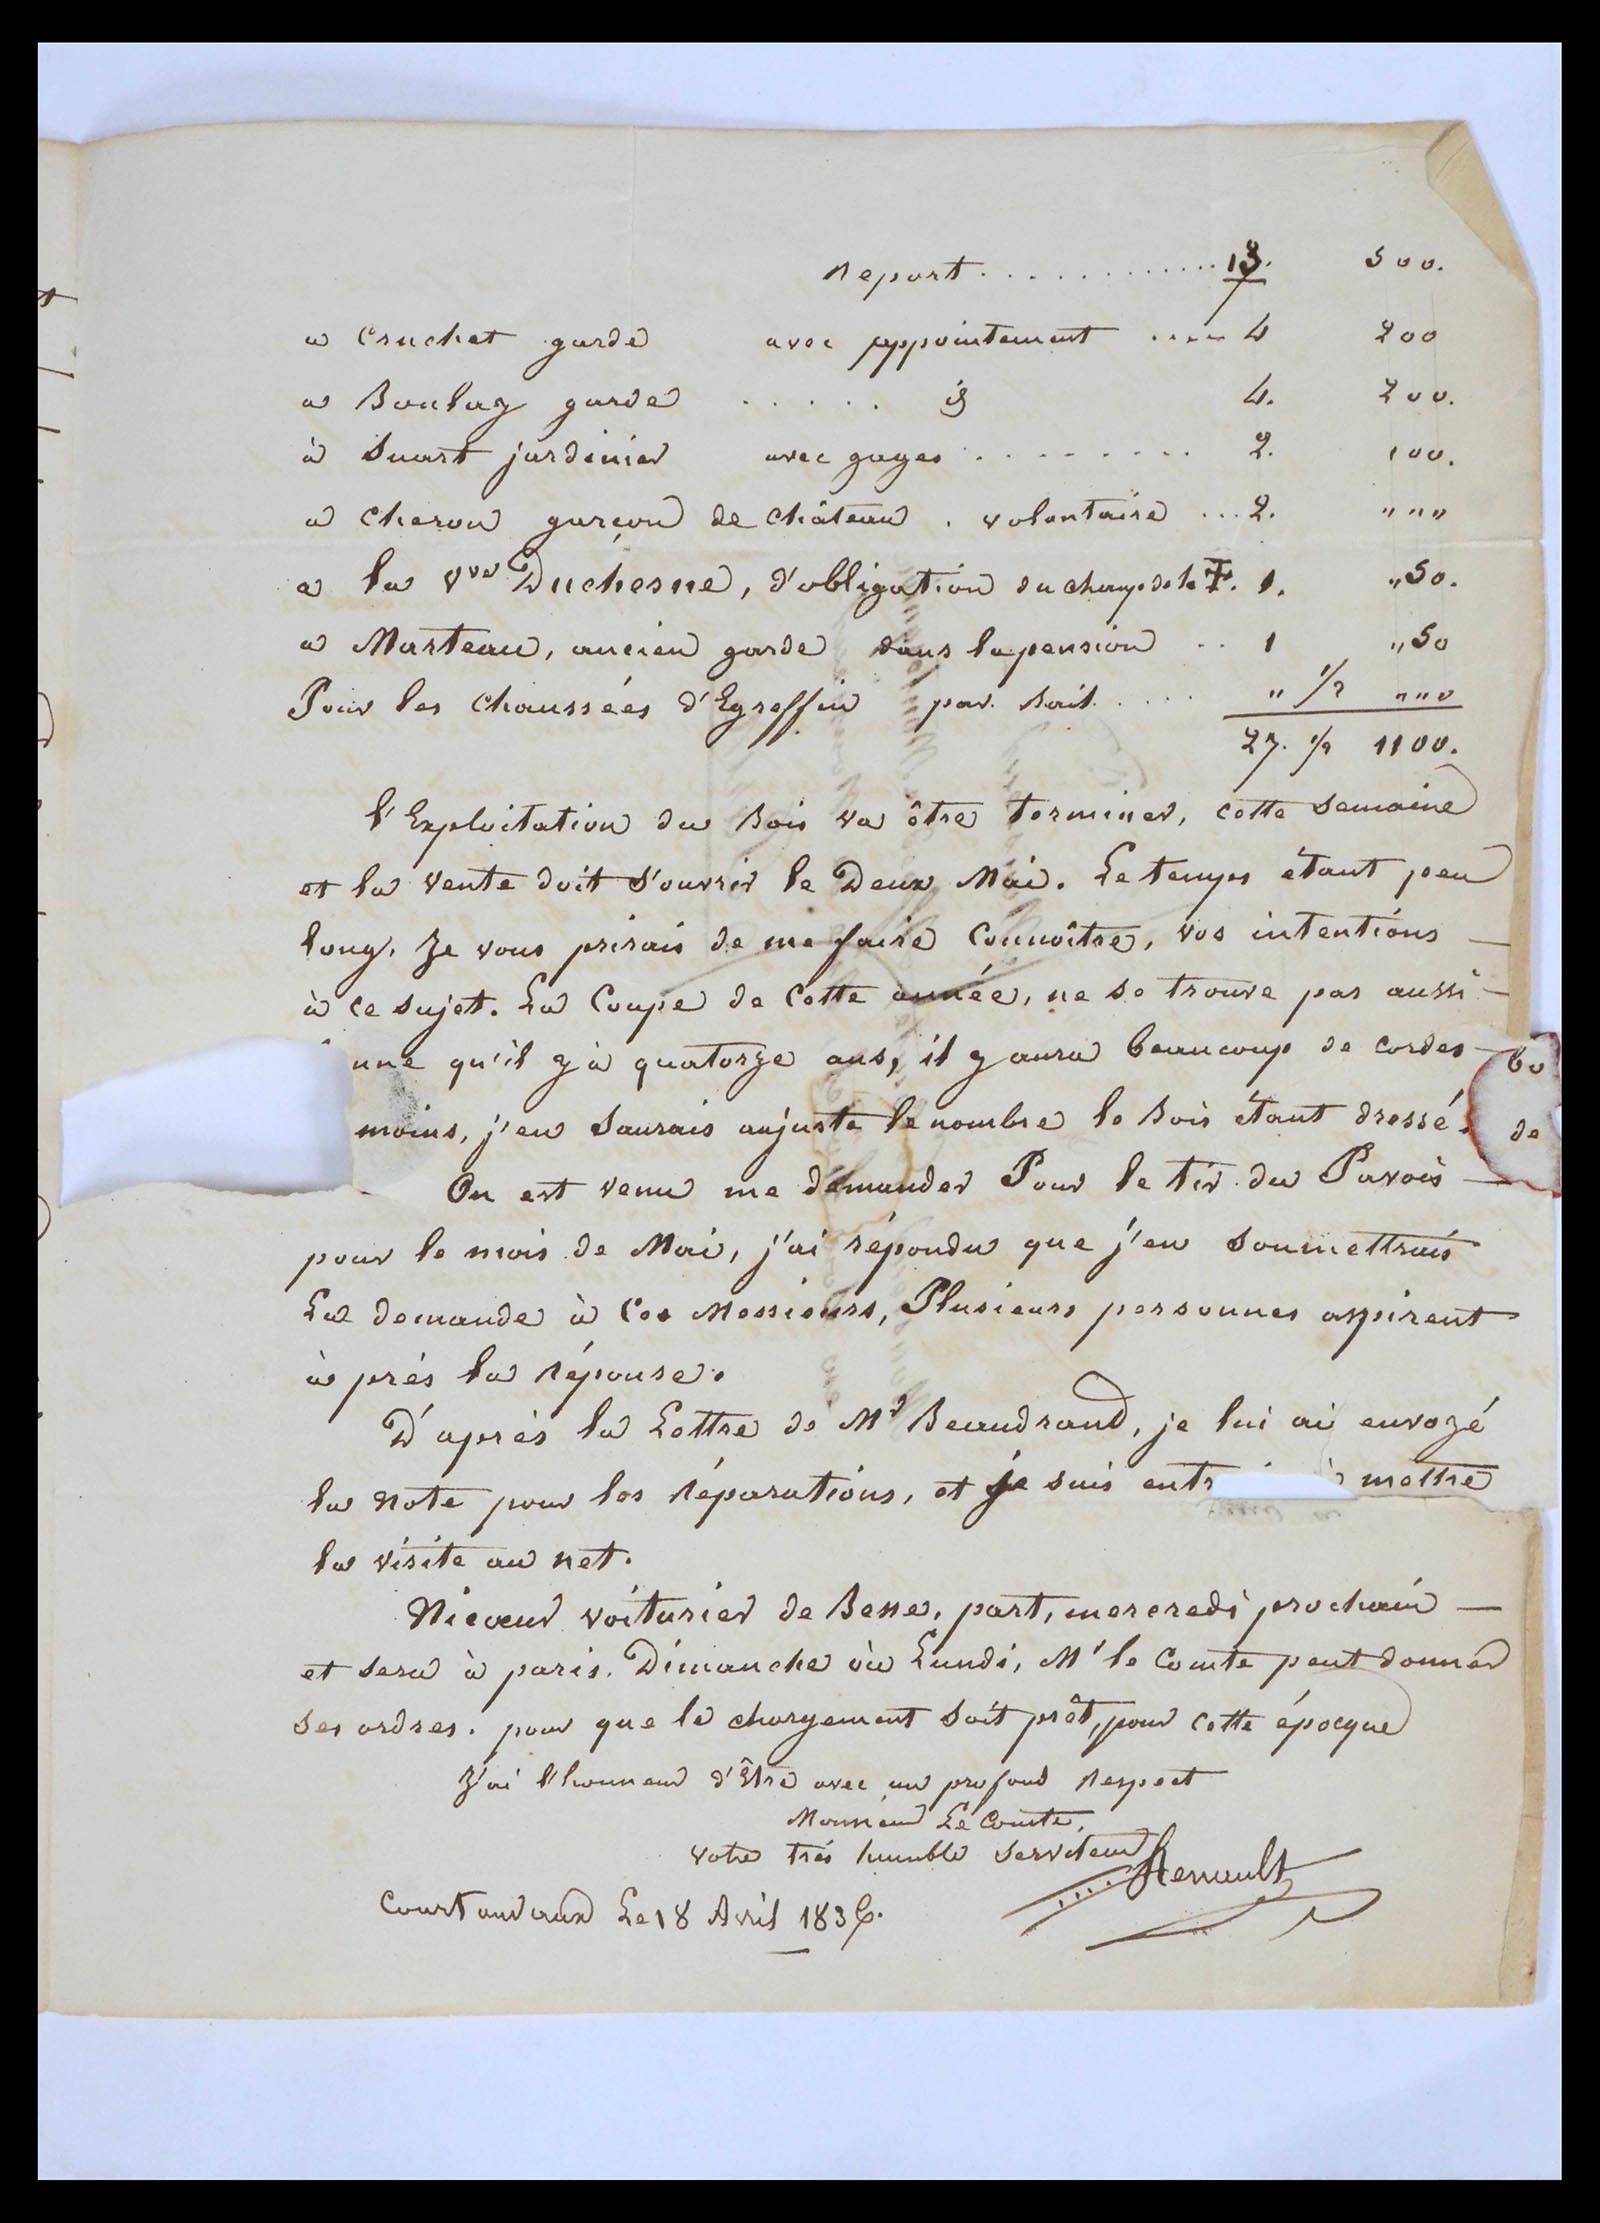 Report ............ 13. 500.
a Cruchet garde avec appointement .... 4 200
a Boulay garde ..... id 4. 200.
à Suart jardinier avec gages ........ 2. 100.
a Cheron garçon de Château . volontaire ... 2. """
a la Vve Duchesne, d'obligation du champ de la ☩. 1. "50.
a Marteau, ancien garde dans la pension .. 1 "50
Pour les Chaussées d'Egreffin par bail .... " 1/2 """
27. 1/2 1100.
l'Exploitation du Bois va être terminer, cette semaine
et la vente doit s'ouvrir le Deux Mai. Le temps étant peu
long. Je vous prirais de me faire Connoître, vos intentions —
à ce sujet. La Coupe de Cette année, ne se trouve pas aussi —
nne qu'il y à quatorze ans, il y aura beaucoup de cordes — bo
moins, j'en Saurais aujuste le nombre le Bois étant dressé. de
On est venu me demander Pour le tir du Pavois —
pour le mois de Mai, j'ai répondu que j'en Soumettrais
La demande à Ces Messieurs, Plusieurs personnes aspirent
à prés la réponse.
D'aprés la Lettre de Mr Beaudrand, je lui ai envoyé
la Note pour les réparations, et je suis entr mettre
la visite au net.
Nicoeur voiturier de Besse, part, mercredi prochain —
et sera à paris. Dimanche où Lundi, Mr le Comte peut donner
Ses ordres. pour que le chargement Soit prêt, pour cette épocque
J'ai l'honneur d'Être avec un profond Respect
Monsieur Le Comte,
votre trés humble Serviteur
Renault
Courtanvaux Le 18 Avril 1836.